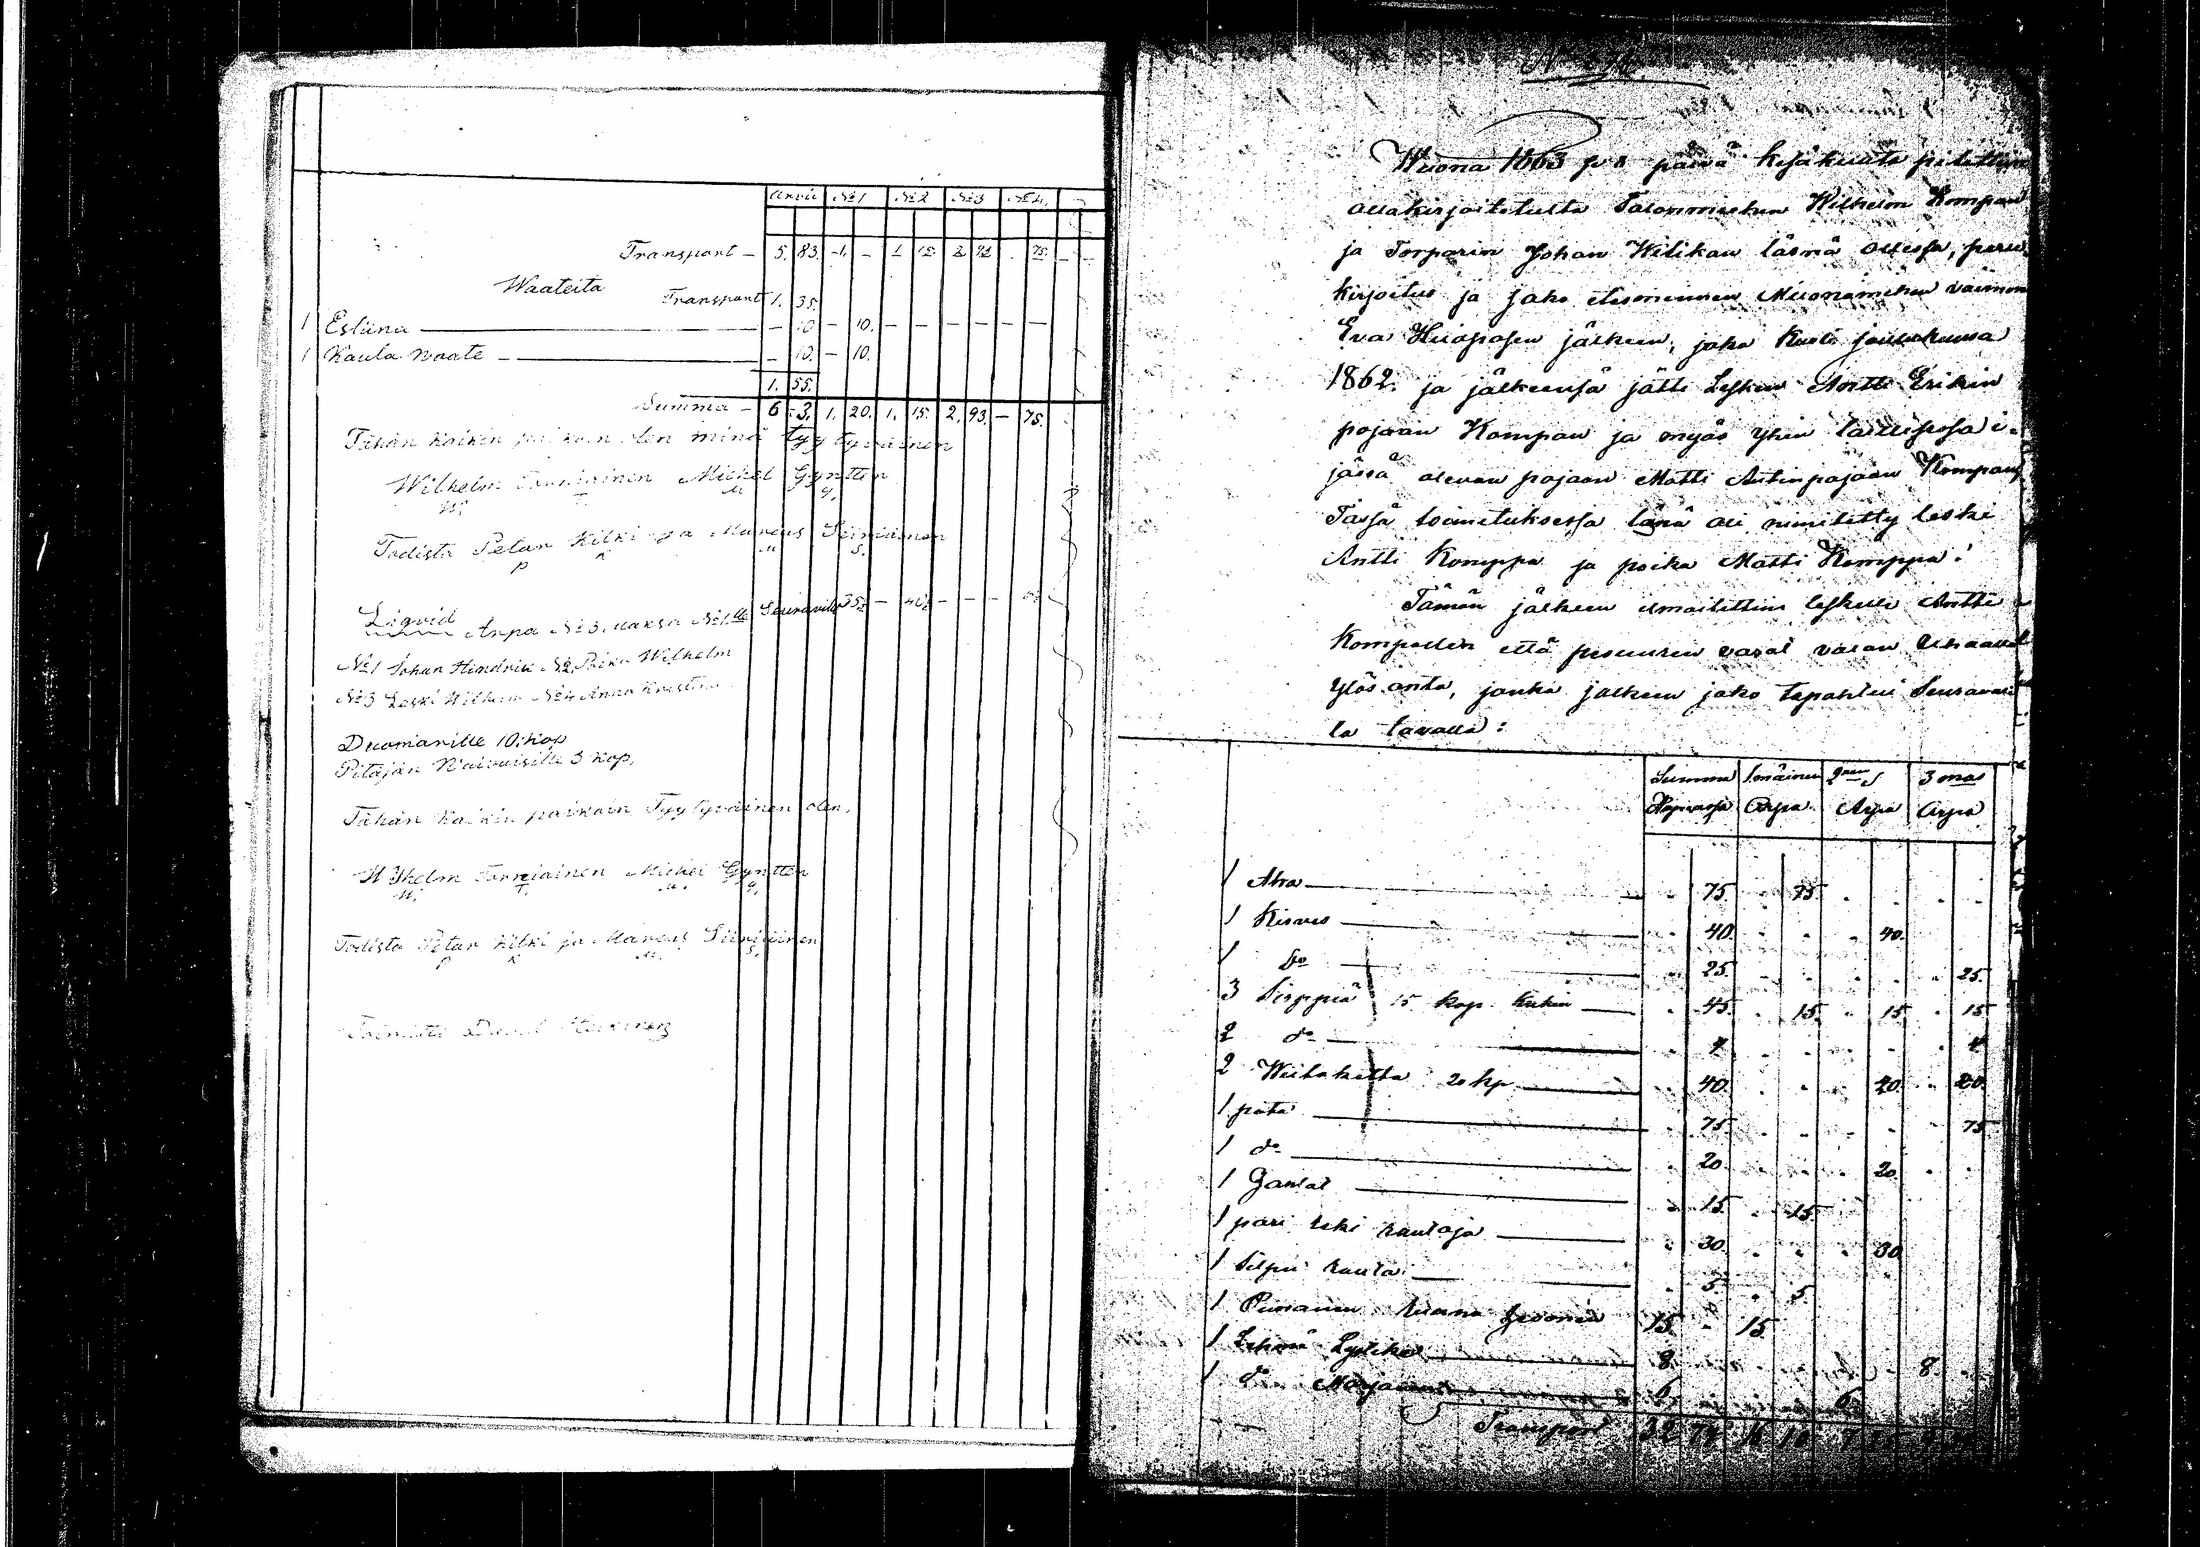 Arvio No 1 No 2 No 3 No 4.
Transport – 5. 83. –1. – 1. 15. 2. 93. . 75.
Waateita
Transport 1. 35.
1 Esliina – 10 – 10. – – – – – –
1 Kaula waate – – 10. – 10.
1. 55.
Summa – 6 – 3. 1. 20. 1. 15. 2. 93. – 75.
Tähän kaikin paikoin olen minä tyytyväinen
Wilhelm Torniainen Michel Gyntten
W. T. M G.
Todista Petar Kilki ja Marcus Siiriäinen
P K M S.
Ligvid Arpa No 3. maksa No 1
No 1 Johan Hindrik No 2 Poika Wilhelm
No 3 Leski Wilhelm No 4 Anna Kristina
Duomarille 10. kop
Pitäjän Waivaisille 3 kop.
Tähän kaikin paikoin Tyytyväinen olen.
Wilhelm Torniainen Michel Gyntten
W. T. M. G.
Todista Petar Kilki ja Marcus Siiriäinen
P K M. S.
Toimitti
Wuona 1863 p 8 päivä kesäkuuta pidettiin
allakirjoitetulta Talonmiehen Wilhelm Kompan
ja Torparin Johan Wilikan läsnä ollessa, peru
kirjoitus ja jako etesmennen Muonamiehen vaimon
Eva Hiiaposen jälkeen, joka kuoli joulukuusa
1862. ja jälkeensä jätti Lesken Antti Erikin
pojaan Kompan ja myös yhen laillisesa i=
jässä olevan pojaan Matti Antinpojaan Kompan,
Tässä toimituksessa läsnä oli nimitetty leski
Antti Komppa ja poika Matti Komppa.
Tämän jälkeen ilmoitettiin leskelle Antti
Kompallen että pesuuren varat valan uhaalla
ylös anta, jonka jälkeen jako tapahtui seuraaval
la tavalla:
Summa 1mäinen 2nen 3mas
Arpa Arpa Arpa
1 Atra . 75. . 75. . . . .
1 Kirves . 40. . . . 40.
1 do . 25. . . . . . 25.
3 Sirppiä 15 kop. kukin . 45. . 15. . 15 . 15
2 do . 4. . . . . . 4
2 Wiitaketta 20 kp . 40. . . . 20. . 20.
1 pata . 75. . . . . . 75
1 do . 20. . . . 20. . .
1 . 15. . 15.
1 pari reki rautoja . 30. . . . 30.
1 Silpu rauta . 5. . 5.
1 Punanen ruuna 15. – 15.
1 Lehmä Lystikas 8. 8.
1 do 6. 6.
Transport 32 74